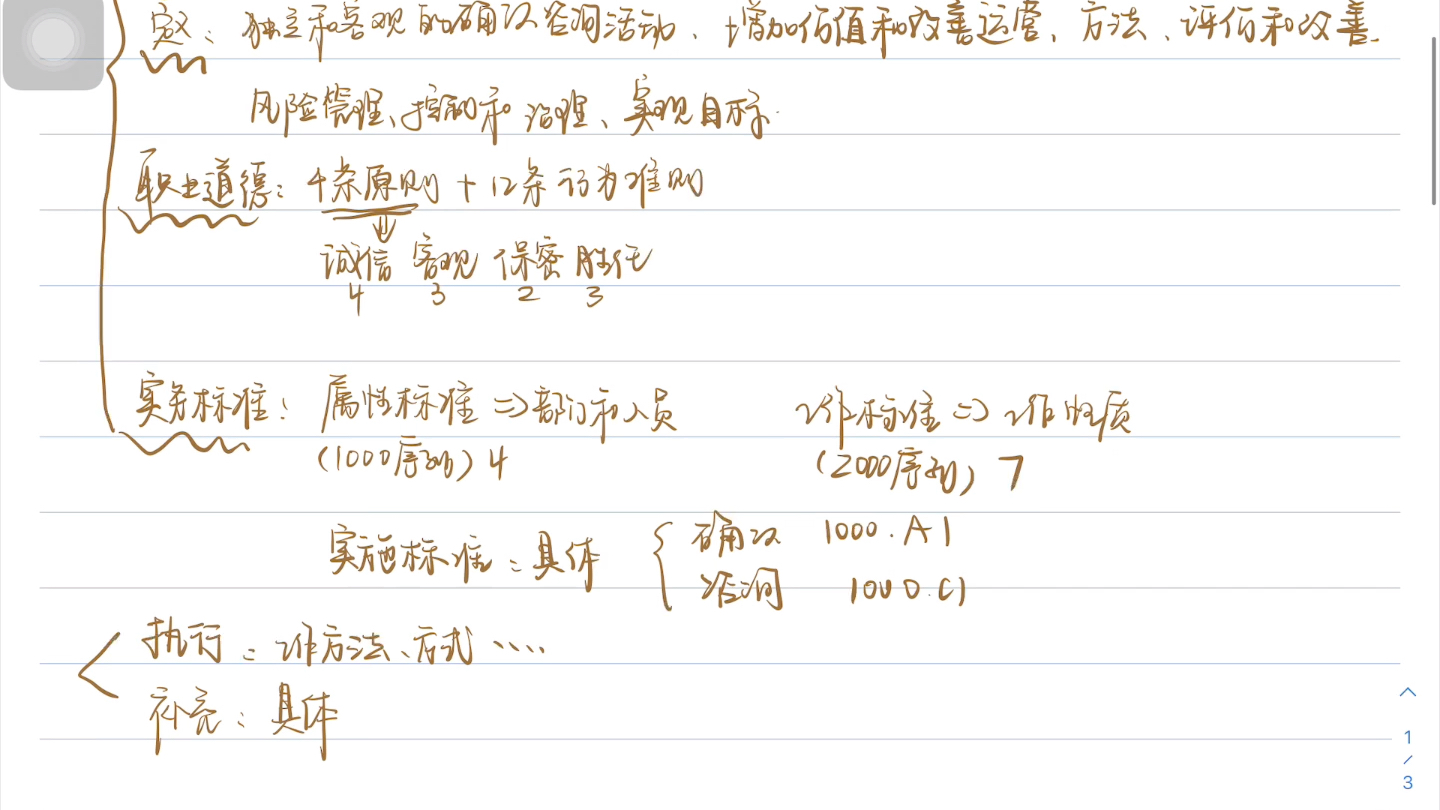 定义：独立和客观的确认咨询活动、增加价值和改善运营、方法、评价和改善
风险管理、控制和治理、实现目标.
职业道德：4条原则 + 12条行为准则
诚信 客观 保密 胜任
4 3 2 3
实务标准：属性标准 => 部门和人员 工作标准 => 工作性质
(1000序列) 4 (2000序列) 7
实施标准：具体 确认 1000.A1
咨询 1000.C1
执行：工作方法、方式....
补充：具体
1
/
3